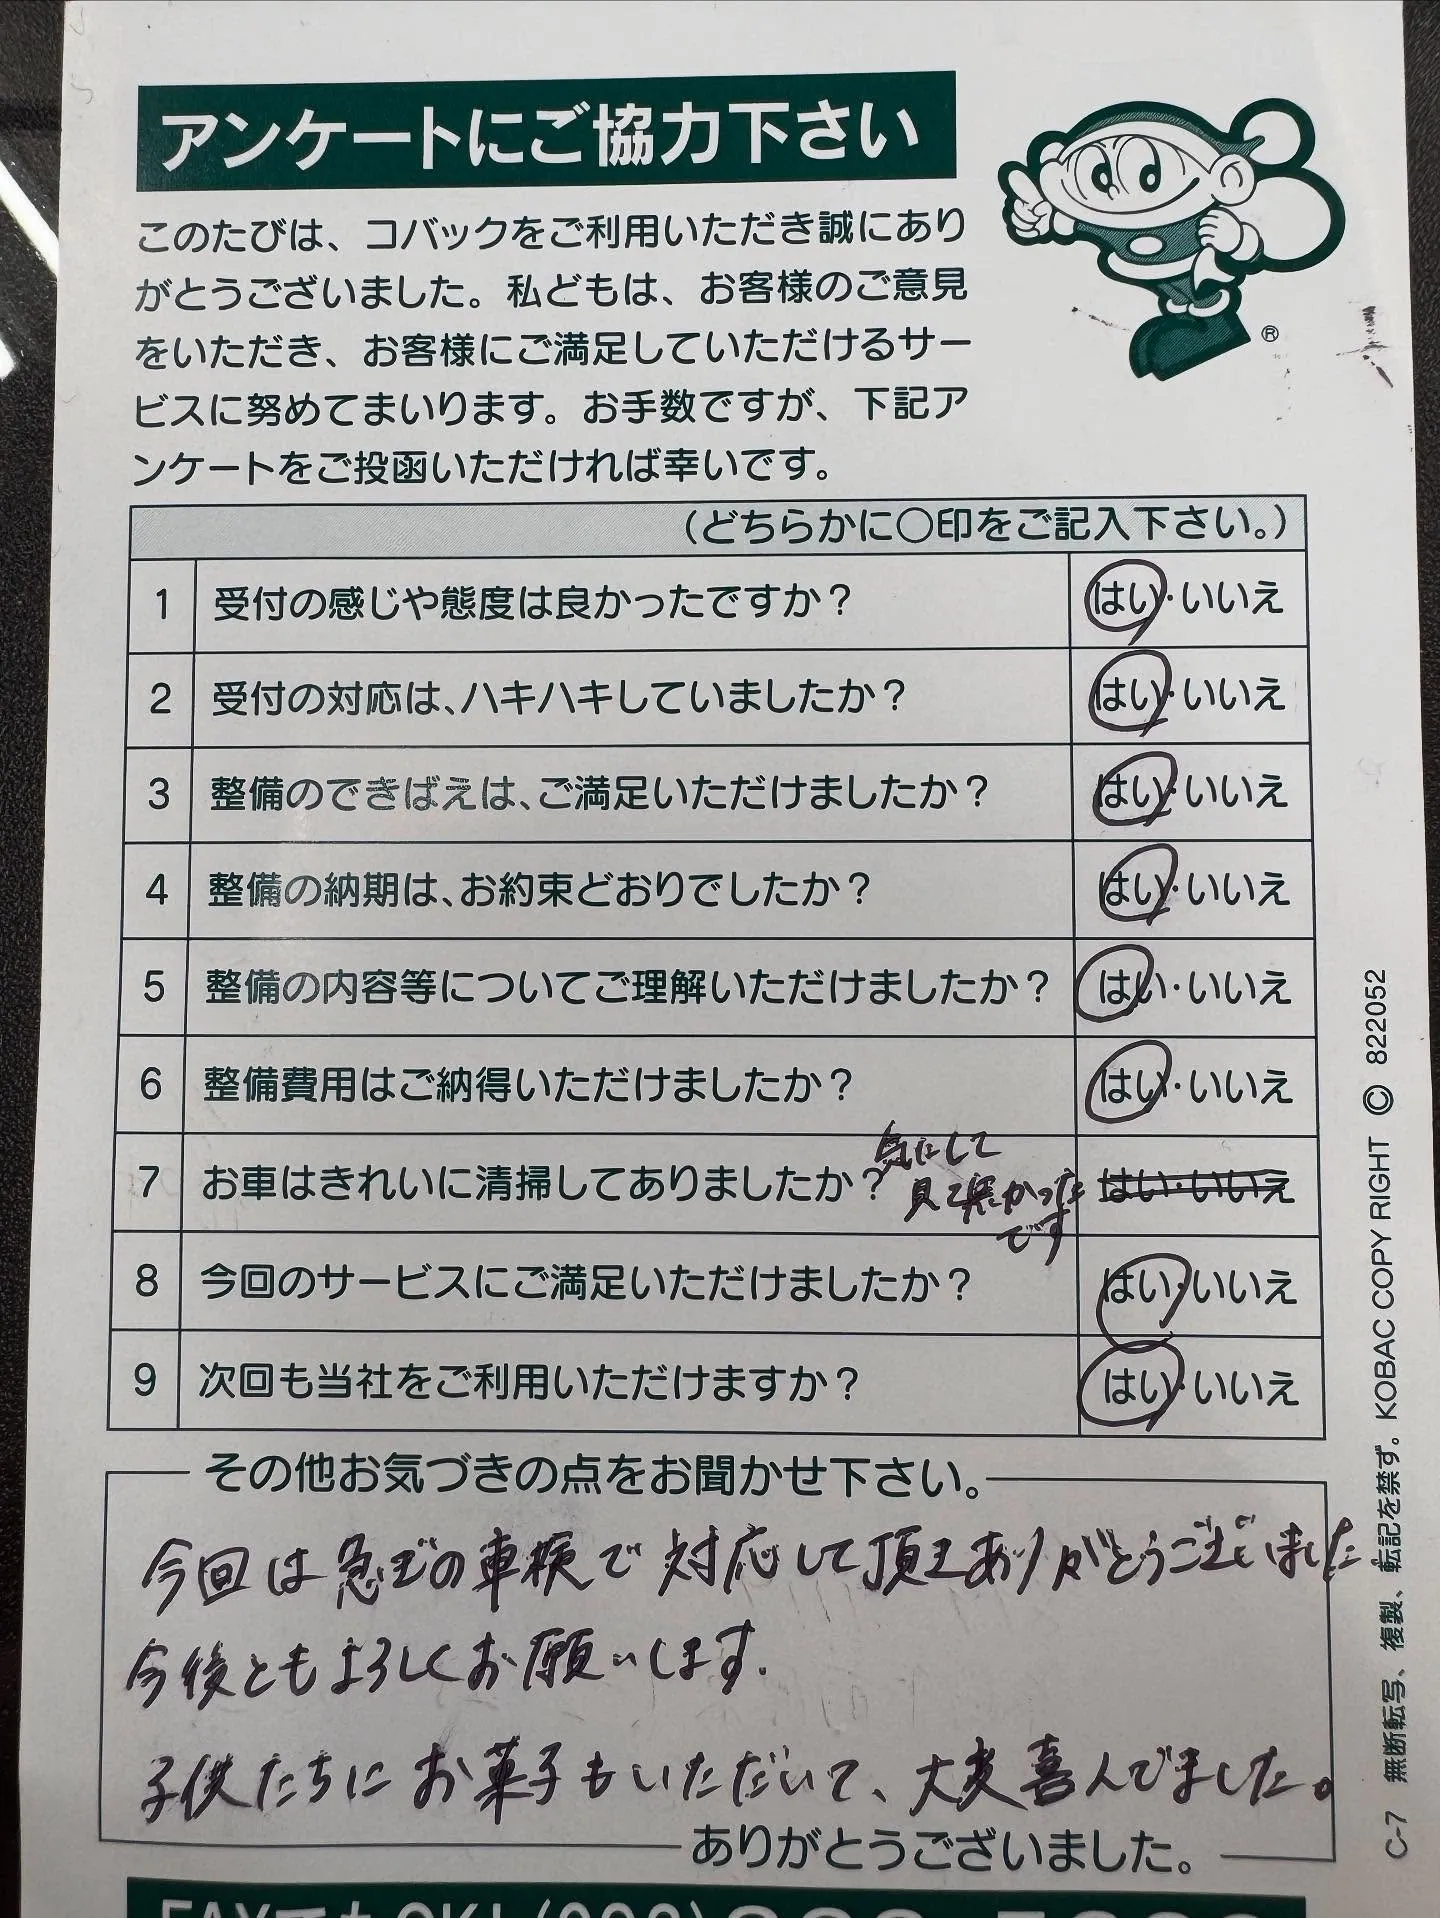 アンケートにご協力下さい
このたびは、コバックをご利用いただき誠にあり
がとうございました。私どもは、お客様のご意見
をいただき、お客様にご満足していただけるサー
ビスに努めてまいります。お手数ですが、下記ア
ンケートをご投函いただければ幸いです。
®
(どちらかに○印をご記入下さい。)
1 受付の感じや態度は良かったですか？ はい・いいえ
2 受付の対応は、ハキハキしていましたか？ はい・いいえ
3 整備のできばえは、ご満足いただけましたか？ はい・いいえ
4 整備の納期は、お約束どおりでしたか？ はい・いいえ
5 整備の内容等についてご理解いただけましたか？ はい・いいえ
6 整備費用はご納得いただけましたか？ はい・いいえ
7 お車はきれいに清掃してありましたか？ はい・いいえ
気にして
見て無かった
です
8 今回のサービスにご満足いただけましたか？ はい・いいえ
9 次回も当社をご利用いただけますか？ はい・いいえ
その他お気づきの点をお聞かせ下さい。
今回は急ぎの車検で対応して頂きありがとうございました
今後ともよろしくお願いします.
子供たちにお菓子もいただいて、大変喜んでました。
ありがとうございました。
C-7 無断転写、複製、転記を禁ず。KOBAC COPY RIGHT © 822052